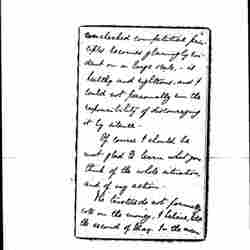 unchecked competition prin-
ciples becomes glaringly evi-
dent on a large scale, - is
healthy and righteous, and I
could not personally run the
responsibility of discouraging
it by silence.
Of course I should be
most glad to learn what you
think of the whole situation,
and of my action.
The Institute do not formally
vote on the money, I believe, till
the second of May. In the mean